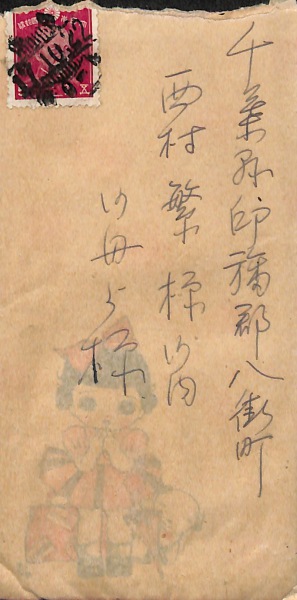 千葉県印旛郡八街町
西村繁様御内
御母上様